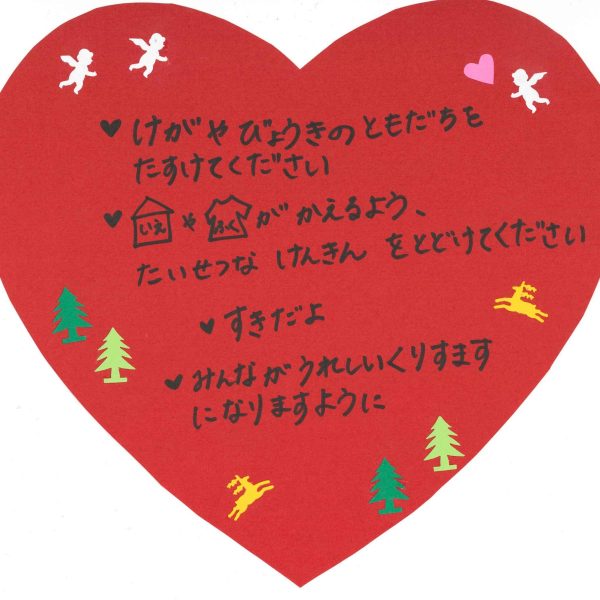 ♥ けがやびょうきのともだちを
たすけてください
♥ いえ や ふく が かえるよう、
たいせつな げんきん をとどけてください
♥ すきだよ
♥ みんながうれしいくりすます
になりますように